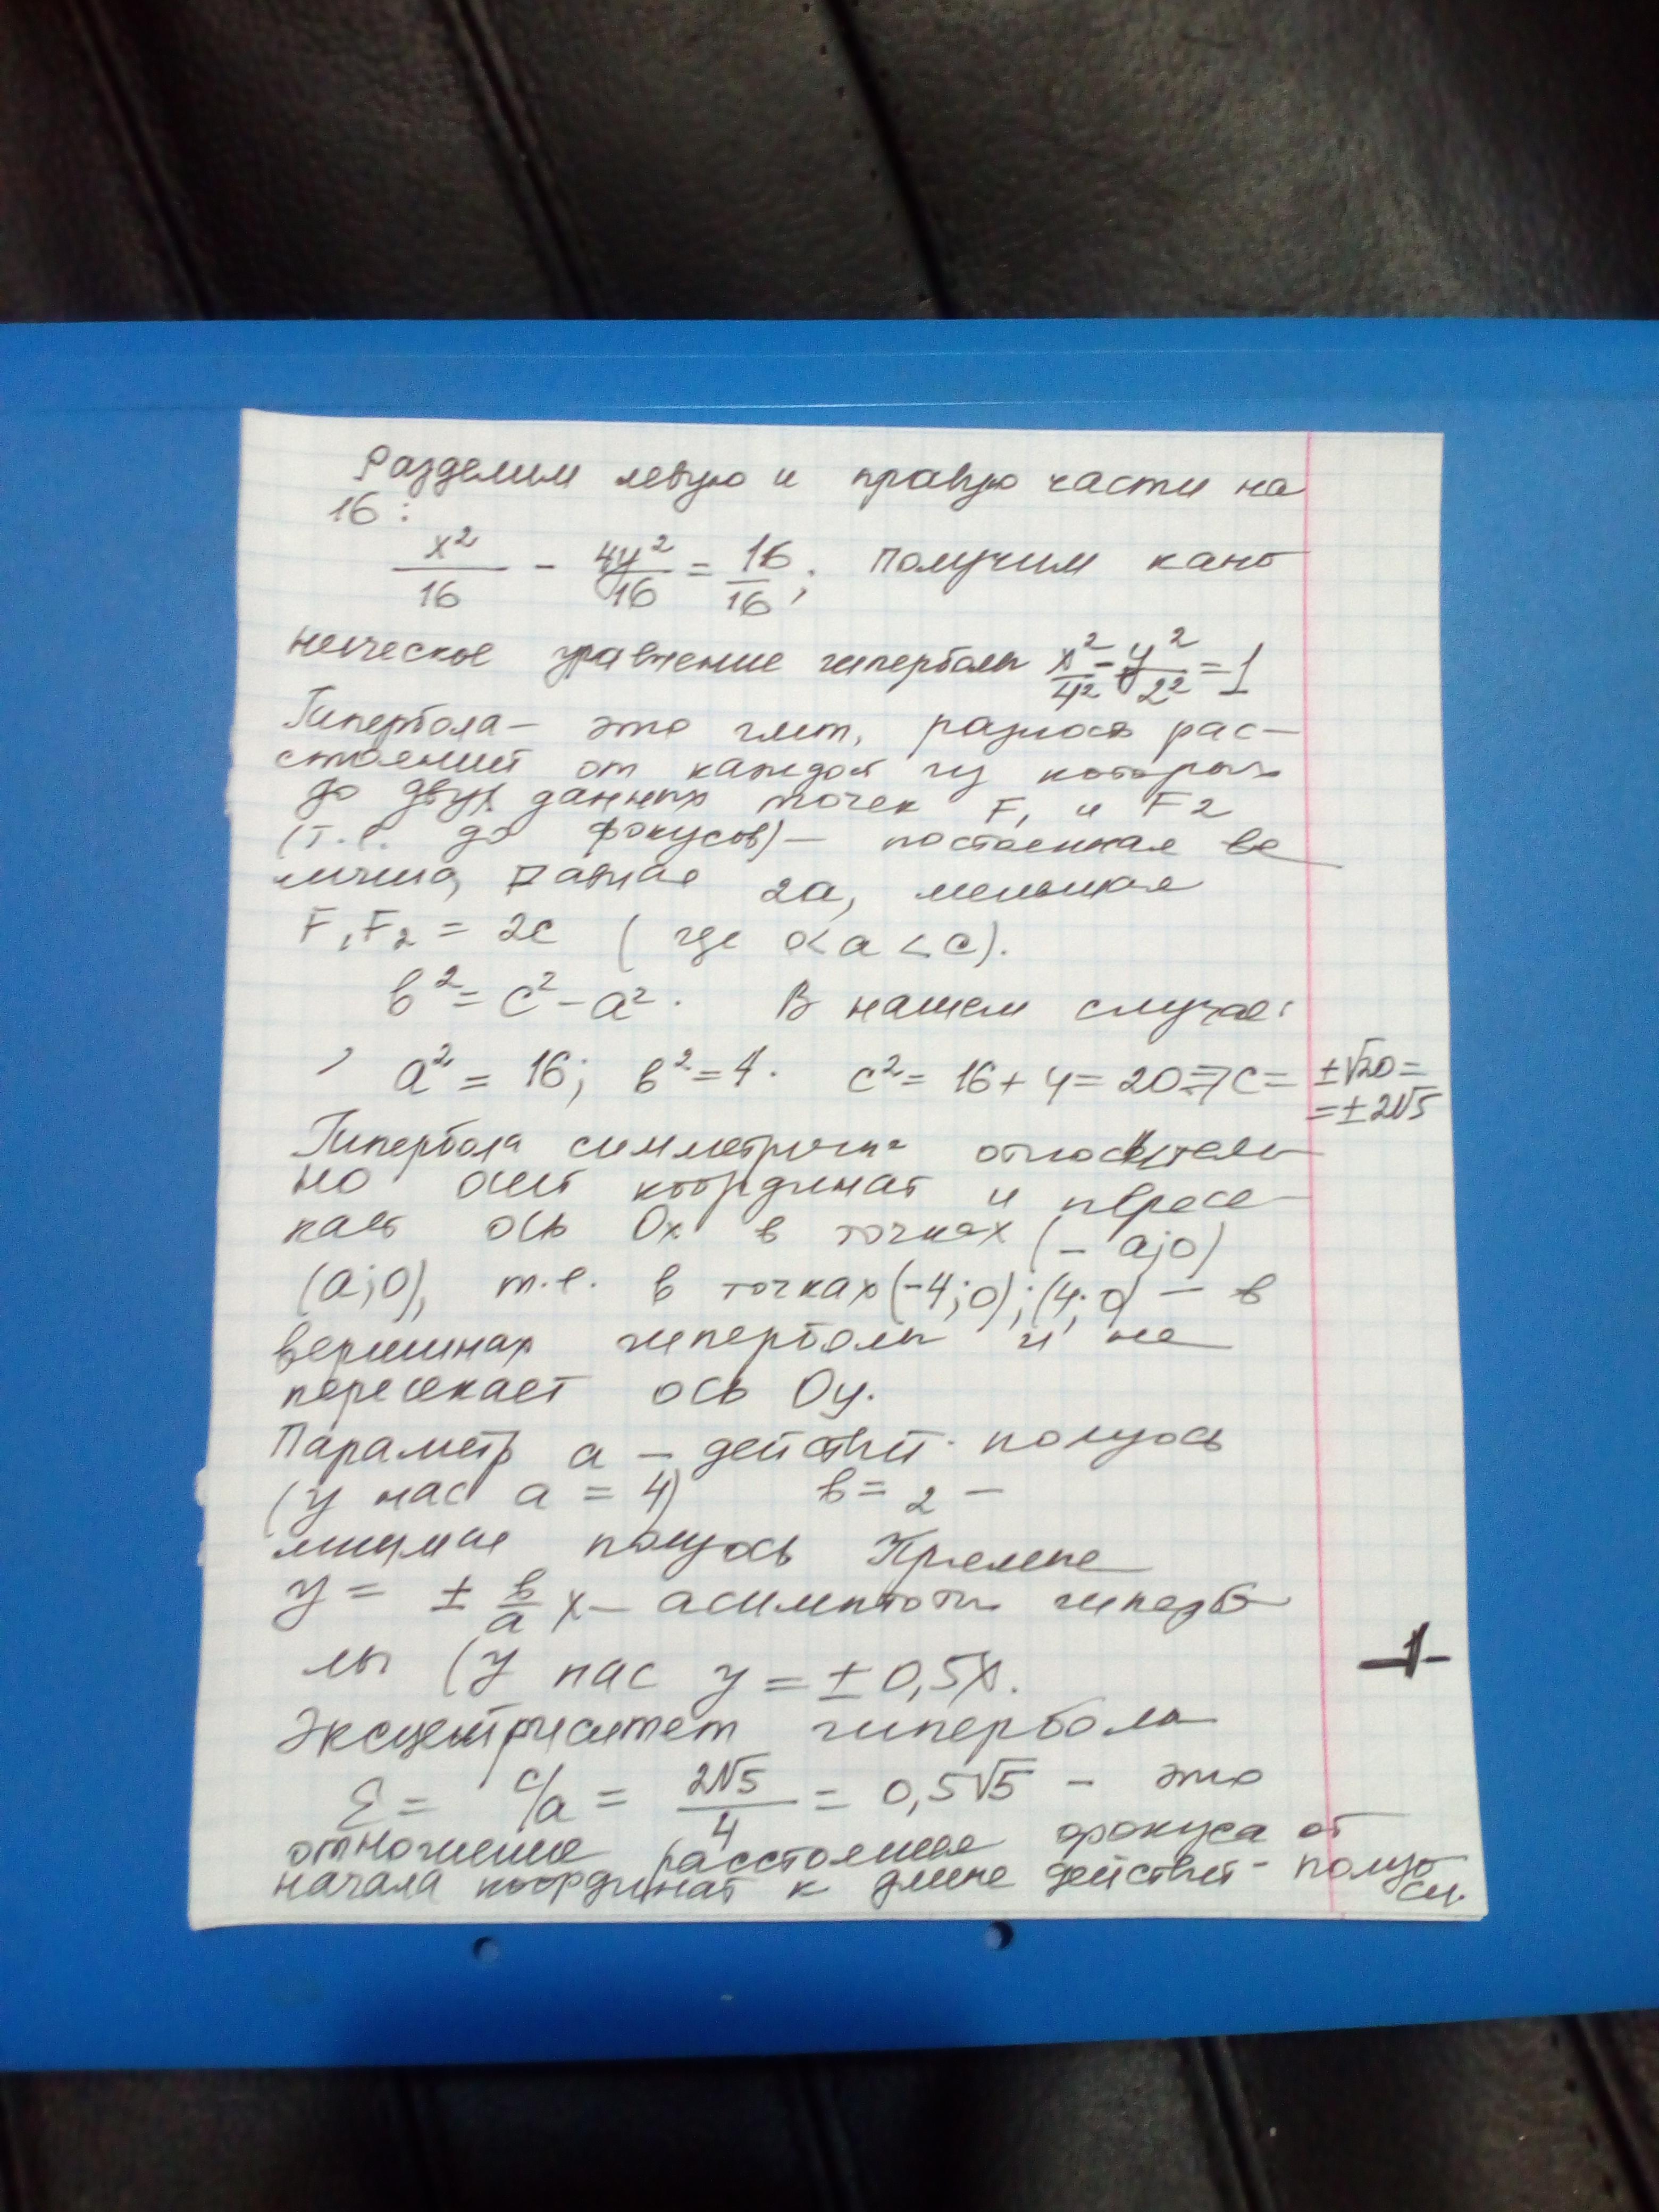 Разделим левую и правую части на
16:
x²/16 - 4y²/16 = 16/16; получим кано
ническое уравнение гиперболы x²/4² - y²/2² = 1
Гипербола - это гмт, разность рас-
стояний от каждой из которых
до двух данных точек F₁ и F2
(т.е. до фокусов) - постоянная ве
личина, равная 2a, меньшая
F₁F₂ = 2c (где 0 < a < c).
b² = c² - a². В нашем случае:
a² = 16; b² = 4. c² = 16 + 4 = 20 => c = ±√20 =
= ±2√5
Гипербола симметрична относитель
но осей координат и пересе
кает ось Ox в точках (-a;0)
(a;0), т.е. в точках (-4;0); (4;0) - в
вершинах гиперболы и не
пересекает ось Oy.
Параметр a - действит. полуось
(у нас a = 4) b = 2 -
мнимая полуось Прямые
y = ± b/a x - асимптоты гипербо
лы (у нас y = ± 0,5x.
-1-
Эксцентриситет гиперболы
ε = c/a = 2√5/4 = 0,5√5 - это
отношение расстояния фокуса от
начала координат к длине действит- полуо
си.